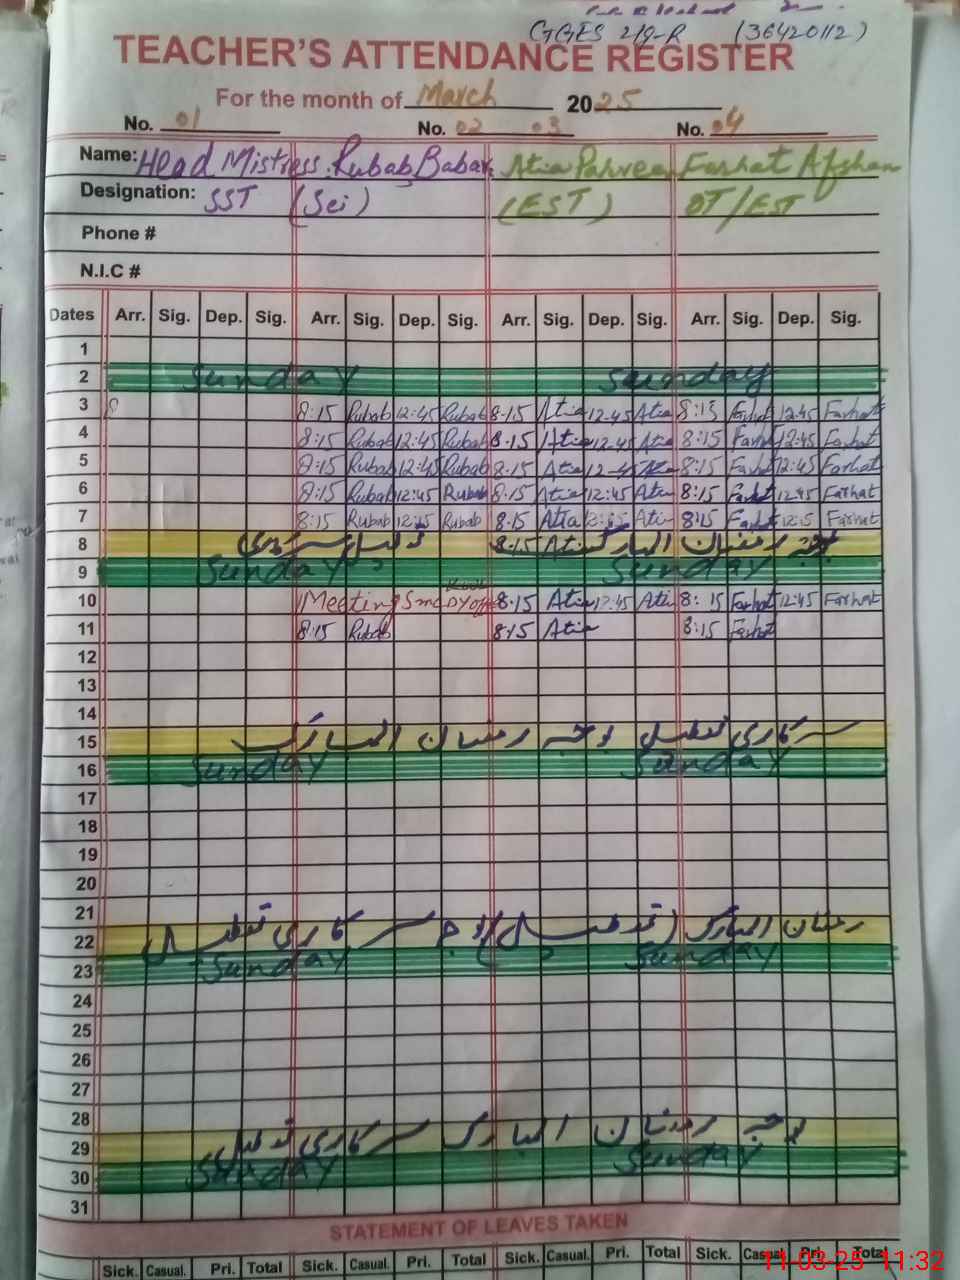 GGES 21/9-R (36420112)
TEACHER'S ATTENDANCE REGISTER
For the month of March 2025
No. 01 No. 02 03 No. 04
Name: Head Mistress. Rubab Babar Atia Parveen Farhat Afshan
Designation: SST (Sci) (EST) DT/EST
Phone #
N.I.C #
Dates Arr. Sig. Dep. Sig. Arr. Sig. Dep. Sig. Arr. Sig. Dep. Sig. Arr. Sig. Dep. Sig.
1
2 Sunday Sunday
3 8:15 Rubab 12:45 Rubab 8-15 Atia 12-45 Atia 8:15 Farhat 12:45 Farhat
4 8:15 Rubab 12:45 Rubab 8-15 Atia 12-45 Atia 8:15 Farhat 12:45 Farhat
5 8:15 Rubab 12:45 Rubab 8-15 Atia 12-45 Atia 8:15 Farhat 12:45 Farhat
6 8:15 Rubab 12:45 Rubab 8-15 Atia 12:45 Atia 8:15 Farhat 12:45 Farhat
7 8:15 Rubab 12:15 Rubab 8-15 Atia Atia 8:15 Farhat 12:15 Farhat
8 8-15 Atia بوجہ رمضان المبارک سرکاری تعطیل
9 Sunday Sunday
10 Meeting Smc DY off 8-15 Atia 12-45 Atia 8:15 Farhat 12:45 Farhat
11 8:15 Rubab 8:15 Atia 8:15 Farhat
12
13
14
15 سرکاری تعطیل بوجہ رمضان المبارک
16 Sunday Sunday
17
18
19
20
21
22 رمضان المبارک (تعطیل) بوجہ سرکاری تعطیل
23 Sunday Sunday
24
25
26
27
28
29 بوجہ رمضان المبارک سرکاری تعطیل
30 Sunday Sunday
31
STATEMENT OF LEAVES TAKEN
Sick. Casual. Pri. Total Sick. Casual. Pri. Total Sick. Casual. Pri. Total Sick. Casual Pri. Total
11-03-25 11:32